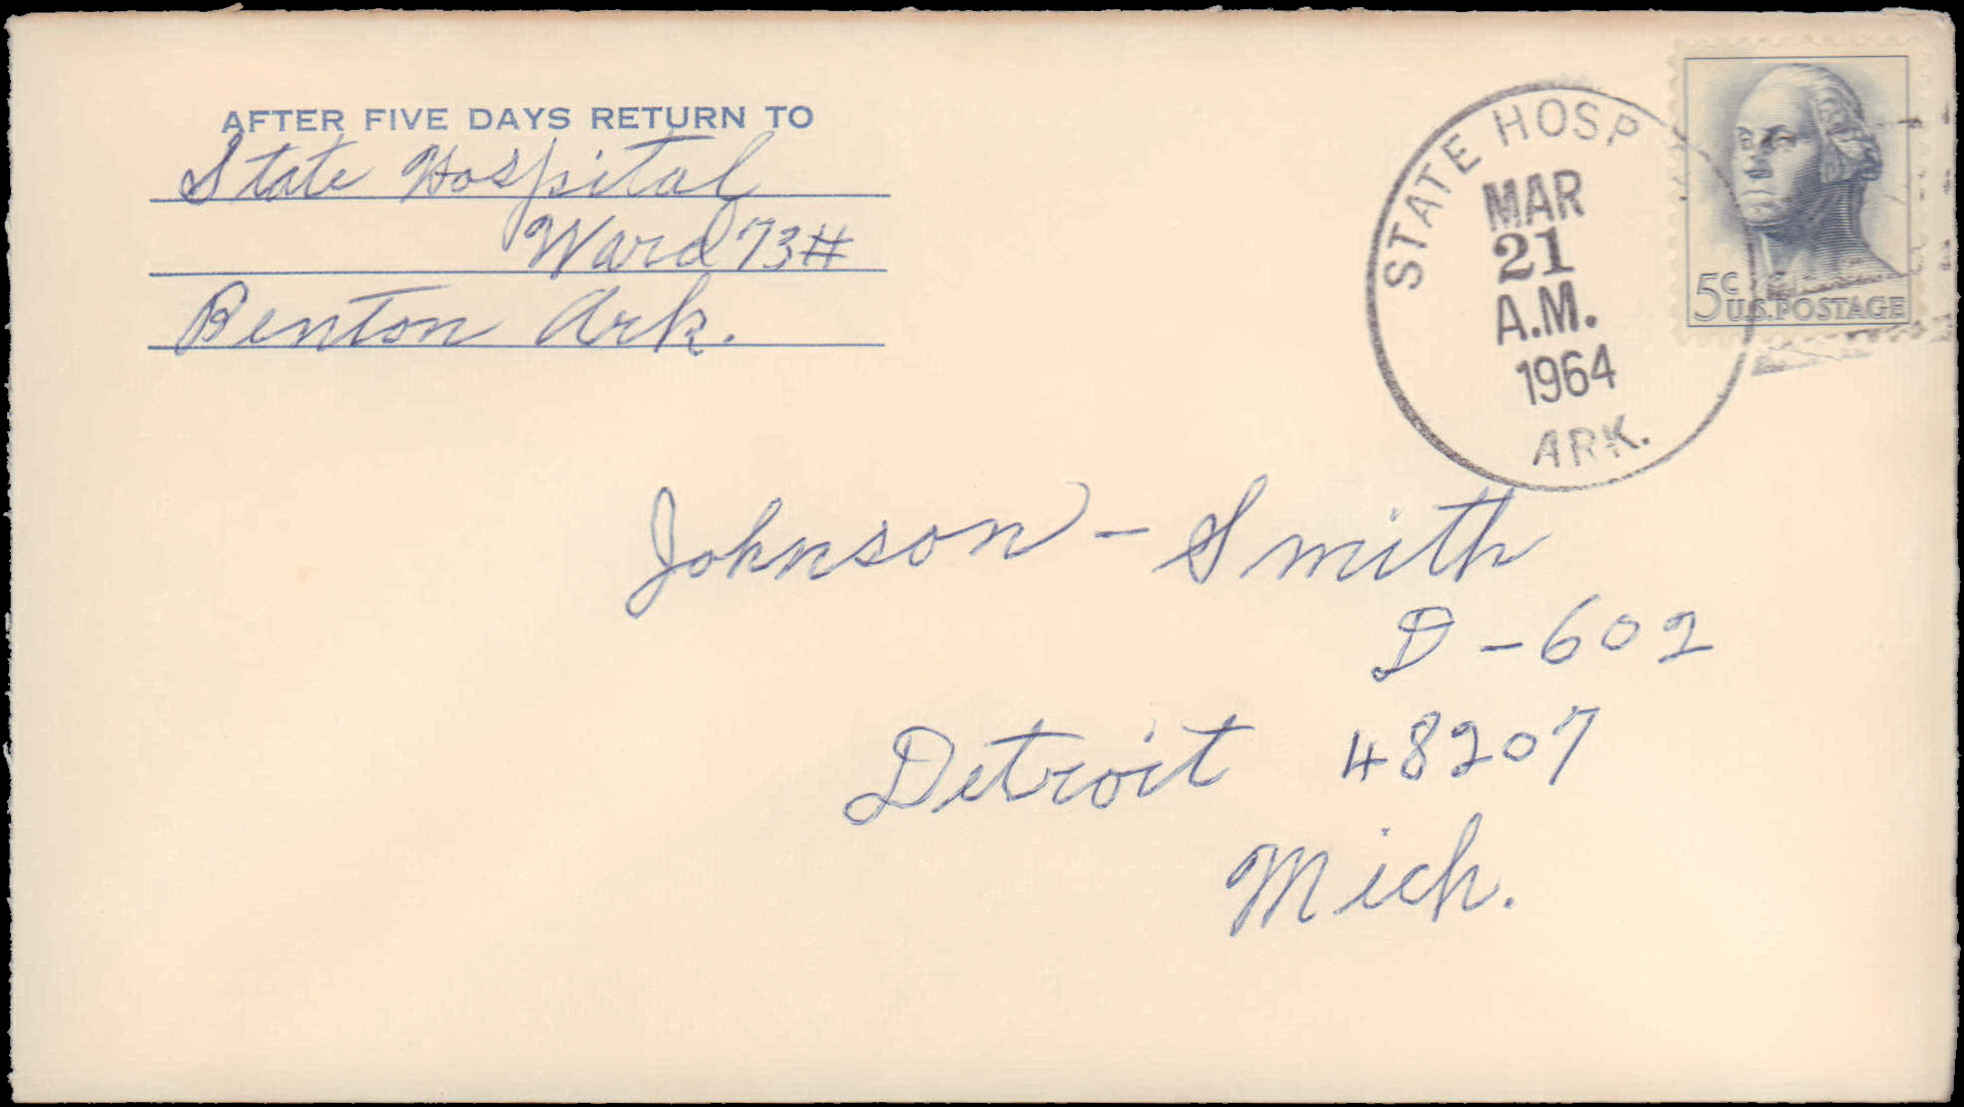 AFTER FIVE DAYS RETURN TO
State Hospital
Ward 73#
Benton Ark.
STATE HOSP
MAR
21
A.M.
1964
ARK.
5¢
U.S. POSTAGE
Johnson - Smith
D - 602
Detroit 48207
Mich.